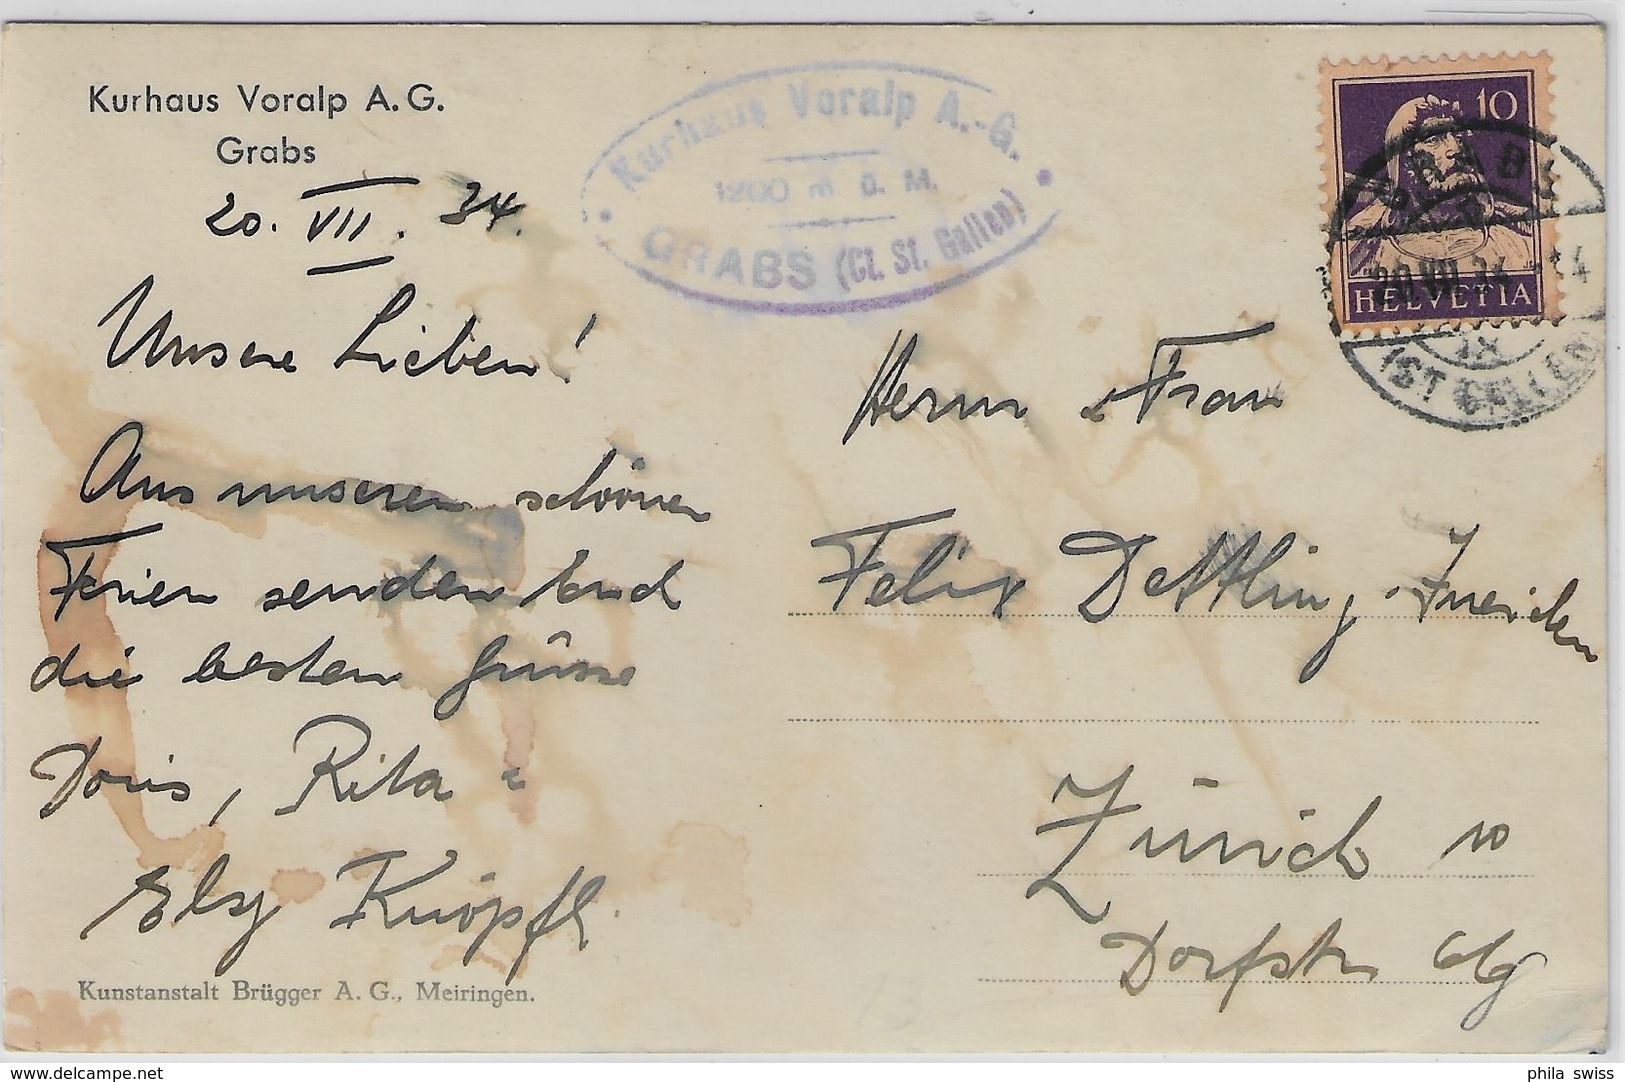 Kurhaus Voralp A. G.
Grabs
20. VII. 34.
Kurhaus Voralp A.-G.
1200 m. ü. M.
GRABS (Ct. St. Gallen)
10
HELVETIA
GRABS
20.VII.34.-14
IX
(ST. GALLEN)
Unsere Lieben!
Aus unseren schönen
Ferien senden Euch
die besten Grüsse
Doris, Rita &
Elsy Knöpfl.
Herrn & Frau
Felix Dettling
Zürich 10
Dorfstr
Kunstanstalt Brügger A. G., Meiringen.
www.delcampe.net
phila_swiss